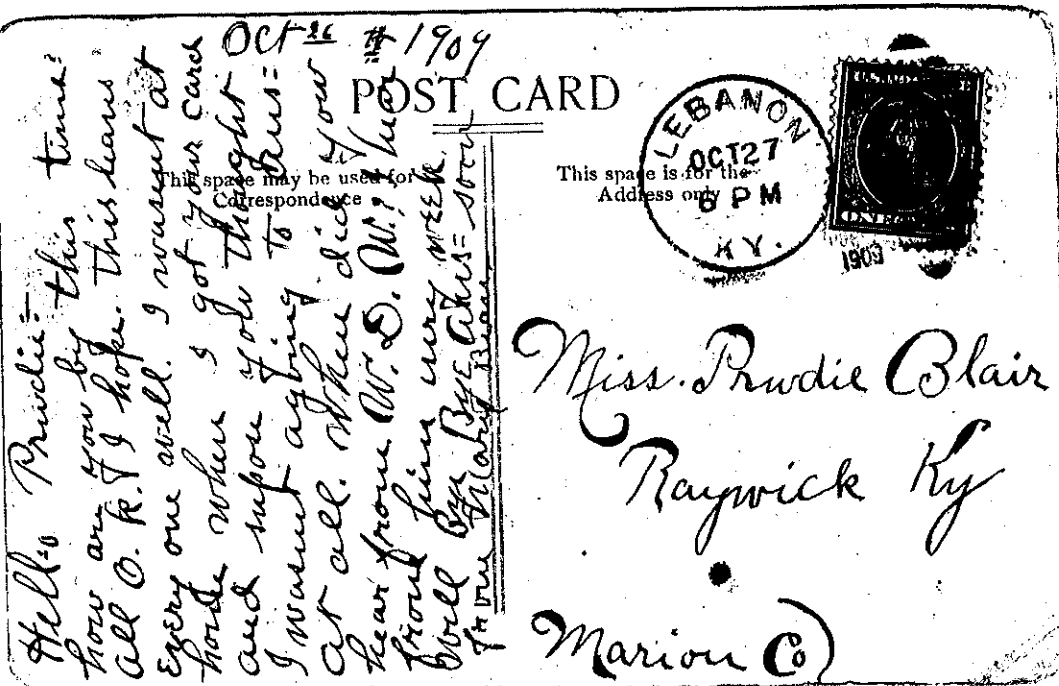 Oct 26 1909
POST CARD
This space may be used for
Correspondence
This space is for the
Address only
LEBANON
OCT 27
6 PM
KY.
1909
Hello Prudie:=
how are you by this time:
all O. K. I hope. this leans
Every one well. I wasent at
home when I got your card
and supose you thought
I wasent agoing to ans=
at all. When did you
hear from W. D. W? hear
from him every week.
Well Bye Bye Ans= soon
from Mary
Miss. Prudie Blair
Raywick Ky
Marion Co